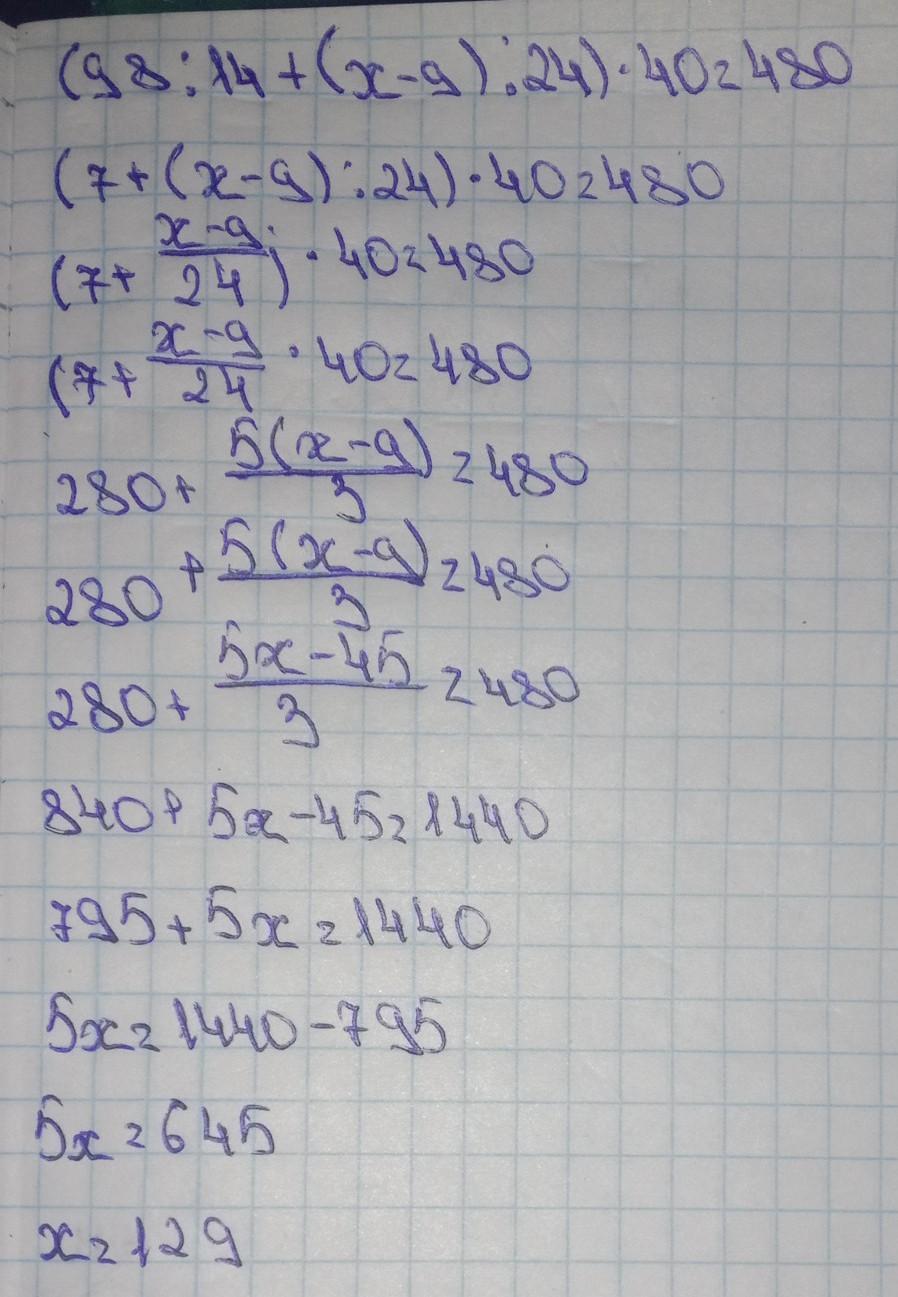 (98:14+(x-9):24)·40=480
(7+(x-9):24)·40=480
(7+ x-9/24)·40=480
(7+ x-9/24 ·40=480
280+ 5(x-9)/3 =480
280+ 5(x-9)/3 =480
280+ 5x-45/3 =480
840+5x-45=1440
795+5x=1440
5x=1440-795
5x=645
x=129